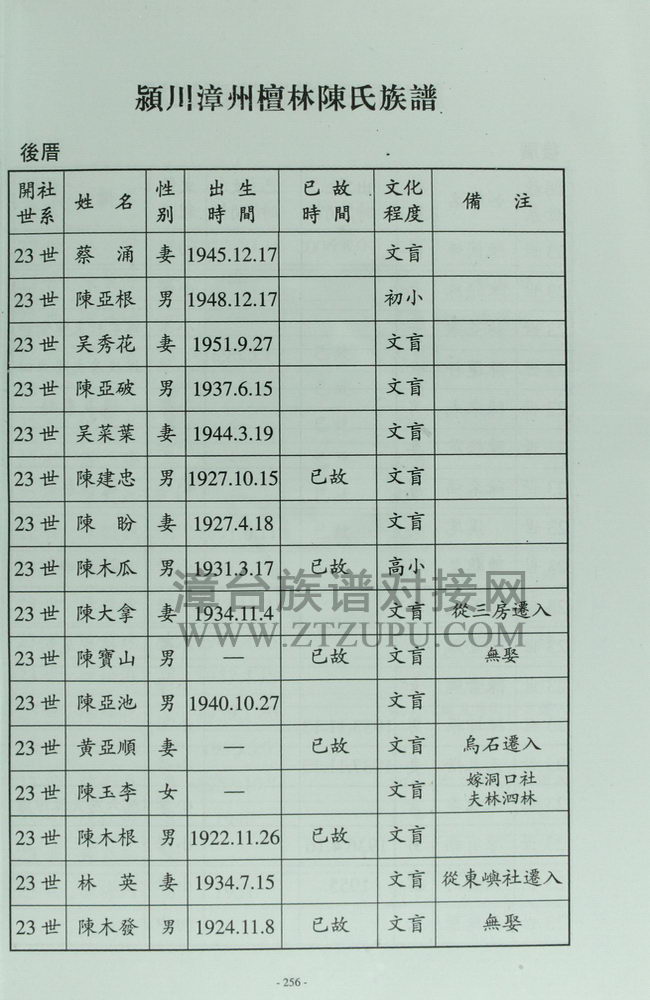 潁川漳州檀林陳氏族譜
後厝
開社世系 姓 名 性别 出生時間 已故時間 文化程度 備 注
23世 蔡 涌 妻 1945.12.17 文盲
23世 陳亞根 男 1948.12.17 初小
23世 吴秀花 妻 1951.9.27 文盲
23世 陳亞破 男 1937.6.15 文盲
23世 吴菜葉 妻 1944.3.19 文盲
23世 陳建忠 男 1927.10.15 已故 文盲
23世 陳 盼 妻 1927.4.18 文盲
23世 陳木瓜 男 1931.3.17 已故 高小
23世 陳大拿 妻 1934.11.4 文盲 從三房遷入
23世 陳寶山 男 — 已故 文盲 無娶
23世 陳亞池 男 1940.10.27 文盲
23世 黄亞順 妻 — 已故 文盲 烏石遷入
23世 陳玉李 女 — 文盲 嫁洞口社夫林泗林
23世 陳木根 男 1922.11.26 已故 文盲
23世 林 英 妻 1934.7.15 文盲 從東嶼社遷入
23世 陳木發 男 1924.11.8 已故 文盲 無娶
漳台族谱对接网
WWW.ZTZUPU.COM
- 256 -